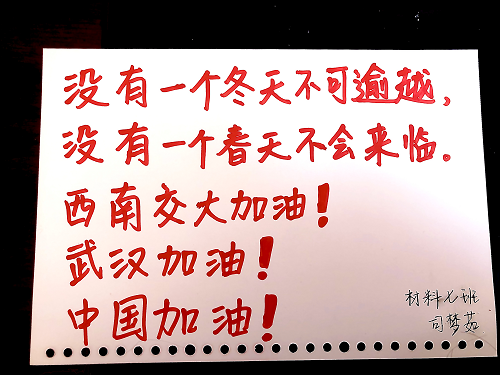 没有一个冬天不可逾越，
没有一个春天不会来临。
西南交大加油！
武汉加油！
中国加油！
材料七班
司梦茹